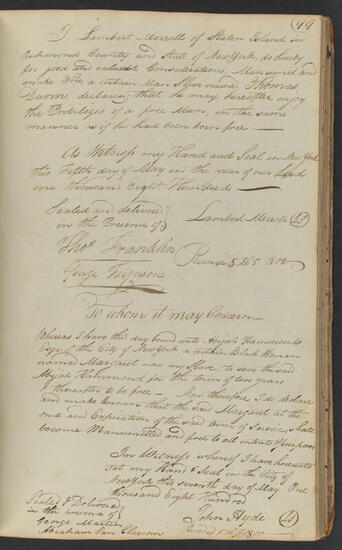 49
I Lambert Merrell of Staten Island in
Richmond County and State of New York, do hereby
for good and valuable Considerations, Manumit and
make Free a certain Man Slave name Thomas
declaring that he may hereafter enjoy
the Privileges of a free Man, in the same
manner as if he had been born free.
As Witness my Hand and Seal in New York
this Fifth day of May in the year of our Lord
one thousand Eight Hundred
Sealed and delivered
in the Presence of
Lambert Merrell LS
Thos. Franklin
George Ferguson
1800
To whom it may Concern
Whereas I have this day bound unto Abijah Hammond
Esqr. of the City of New York a certain Black Woman
named Margaret now my Slave, to serve the said
Abijah Hammond for the term of two years
& thereafter to be free — Now therefore I do declare
and make known that the said Margaret at the
end and Expiration of the said term of Service, shall
become Manumitted and free to all intents & purposes
In Witness whereof I have hereunto
set my Hand & Seal in the City of
New York this seventh day of May One
thousand Eight Hundred
John Hyde LS
Sealed & Delivered
in the presence of
George Martin
Abraham Van